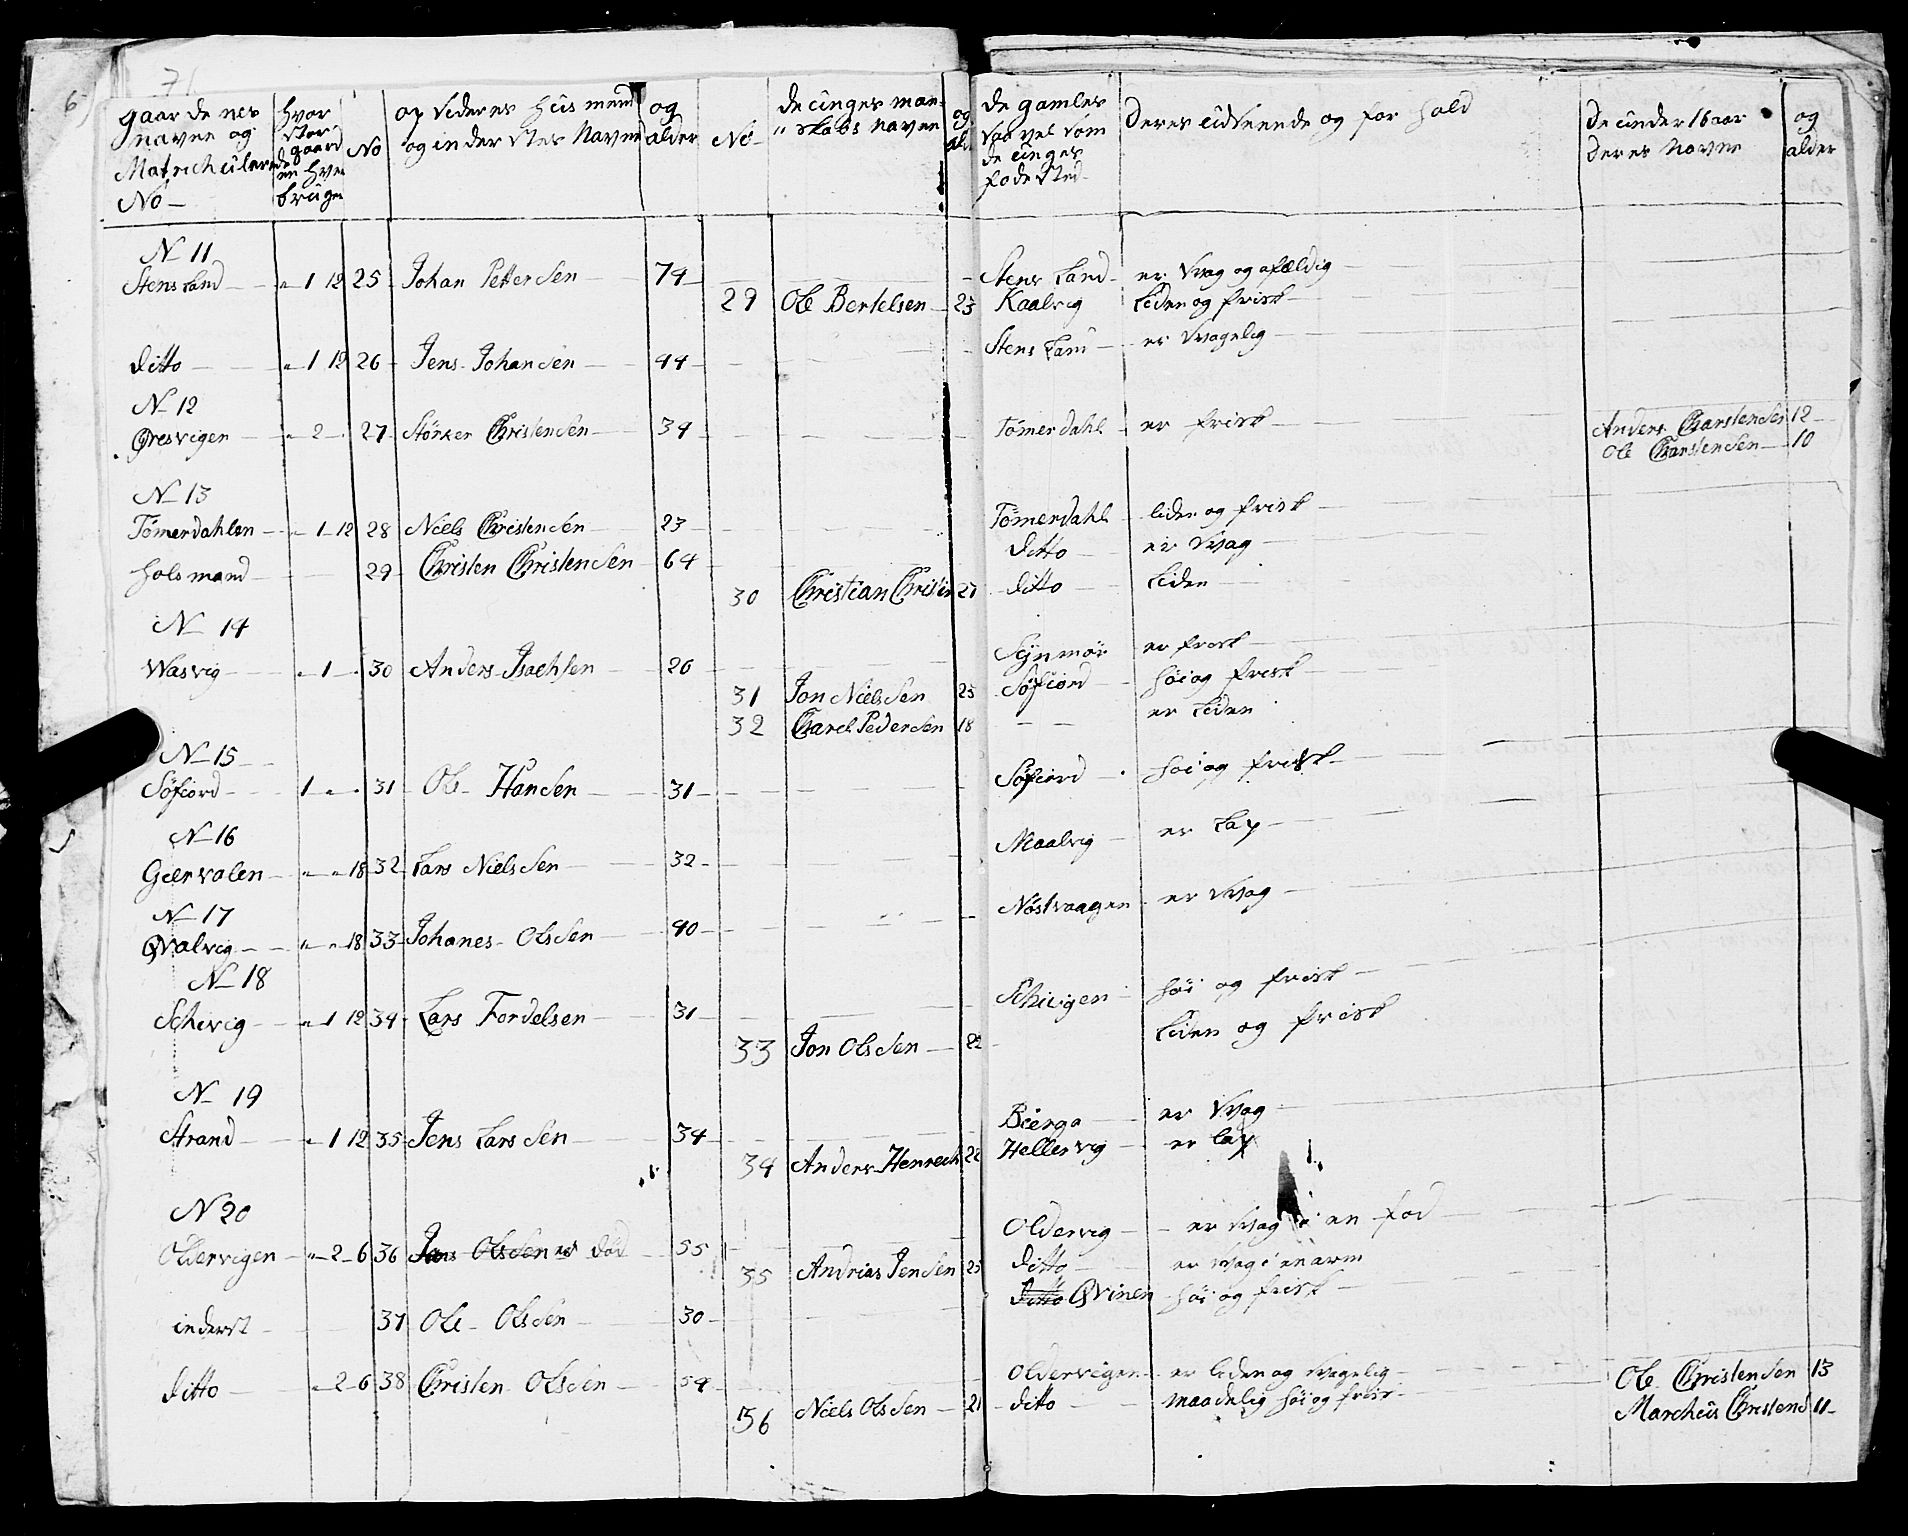 71
gaardenes navne og Matrichulerede No
hvor stor gaard en hver bruger
No
opsideres huusmend og inderstes Navne
og alder
No
de unges mandskabs navne
og ald
de gamles saavel som de unges fødested
Deres udseende og forhold
De under 16 aar deres Navne
og alder
N 11
Stensland " 1 12 25 Johan Pettersen 74 Stensland er svag og afældig
29 Ole Bertelsen 23 Kaalvig Liden og frisk
ditto " 1 12 26 Jens Johansen 44 Stensland er svagelig
N 12
Qresvigen " 2 " 27 Størker Christensen 34 Tømerdahl er frisk Anders Charstensen 12
Ole Charstensen 10
N 13
Tømerdahlen " 1 12 28 Niels Christensen 23 Tømerdahl liden og frisk
holsmand 29 Christen Christensen 64 ditto er svag
30 Christian Christen 27 ditto Liden
N 14
Wasvig " 1 " 30 Anders Isachsen 26 Synmør er frisk
31 Jon Nielsen 25 Søfiord høi og frisk
32 Charel Pedersen 18 er Liden
N 15
Søfiord 1 " " 31 Ole Hansen 31 Søfiord høi og frisk
N 16
Giervalen " " 18 32 Lars Nielsen 32 Maalvig er Lav
N 17
Qvalvig " " 18 33 Johanes Olsen 40 Nøstvaagen er svag
N 18
Schivig " 1 12 34 Lars Fordelsen 31 Schivigen høi og frisk
33 Jon Olsen 22 Liden og frisk
N 19
Strand " 1 12 35 Jens Larsen 34 Bierga er svag
34 Anders Henrech 22 Hellervig er lav
N 20
Oldervigen " 2 6 36 Jens Olsen er død 55 Oldervig er svag i en fod
35 Andrias Jensen 25 ditto er svag i en arm
inderst 37 Ole Olsen 30 ditto Qvinen høi og frisk
ditto " 2 6 38 Christen Olsen 54 Oldervigen er liden og svagelig Ole Christensen 13
36 Niels Olsen 21 ditto maadelig høi og frisk Marchus Christens 11